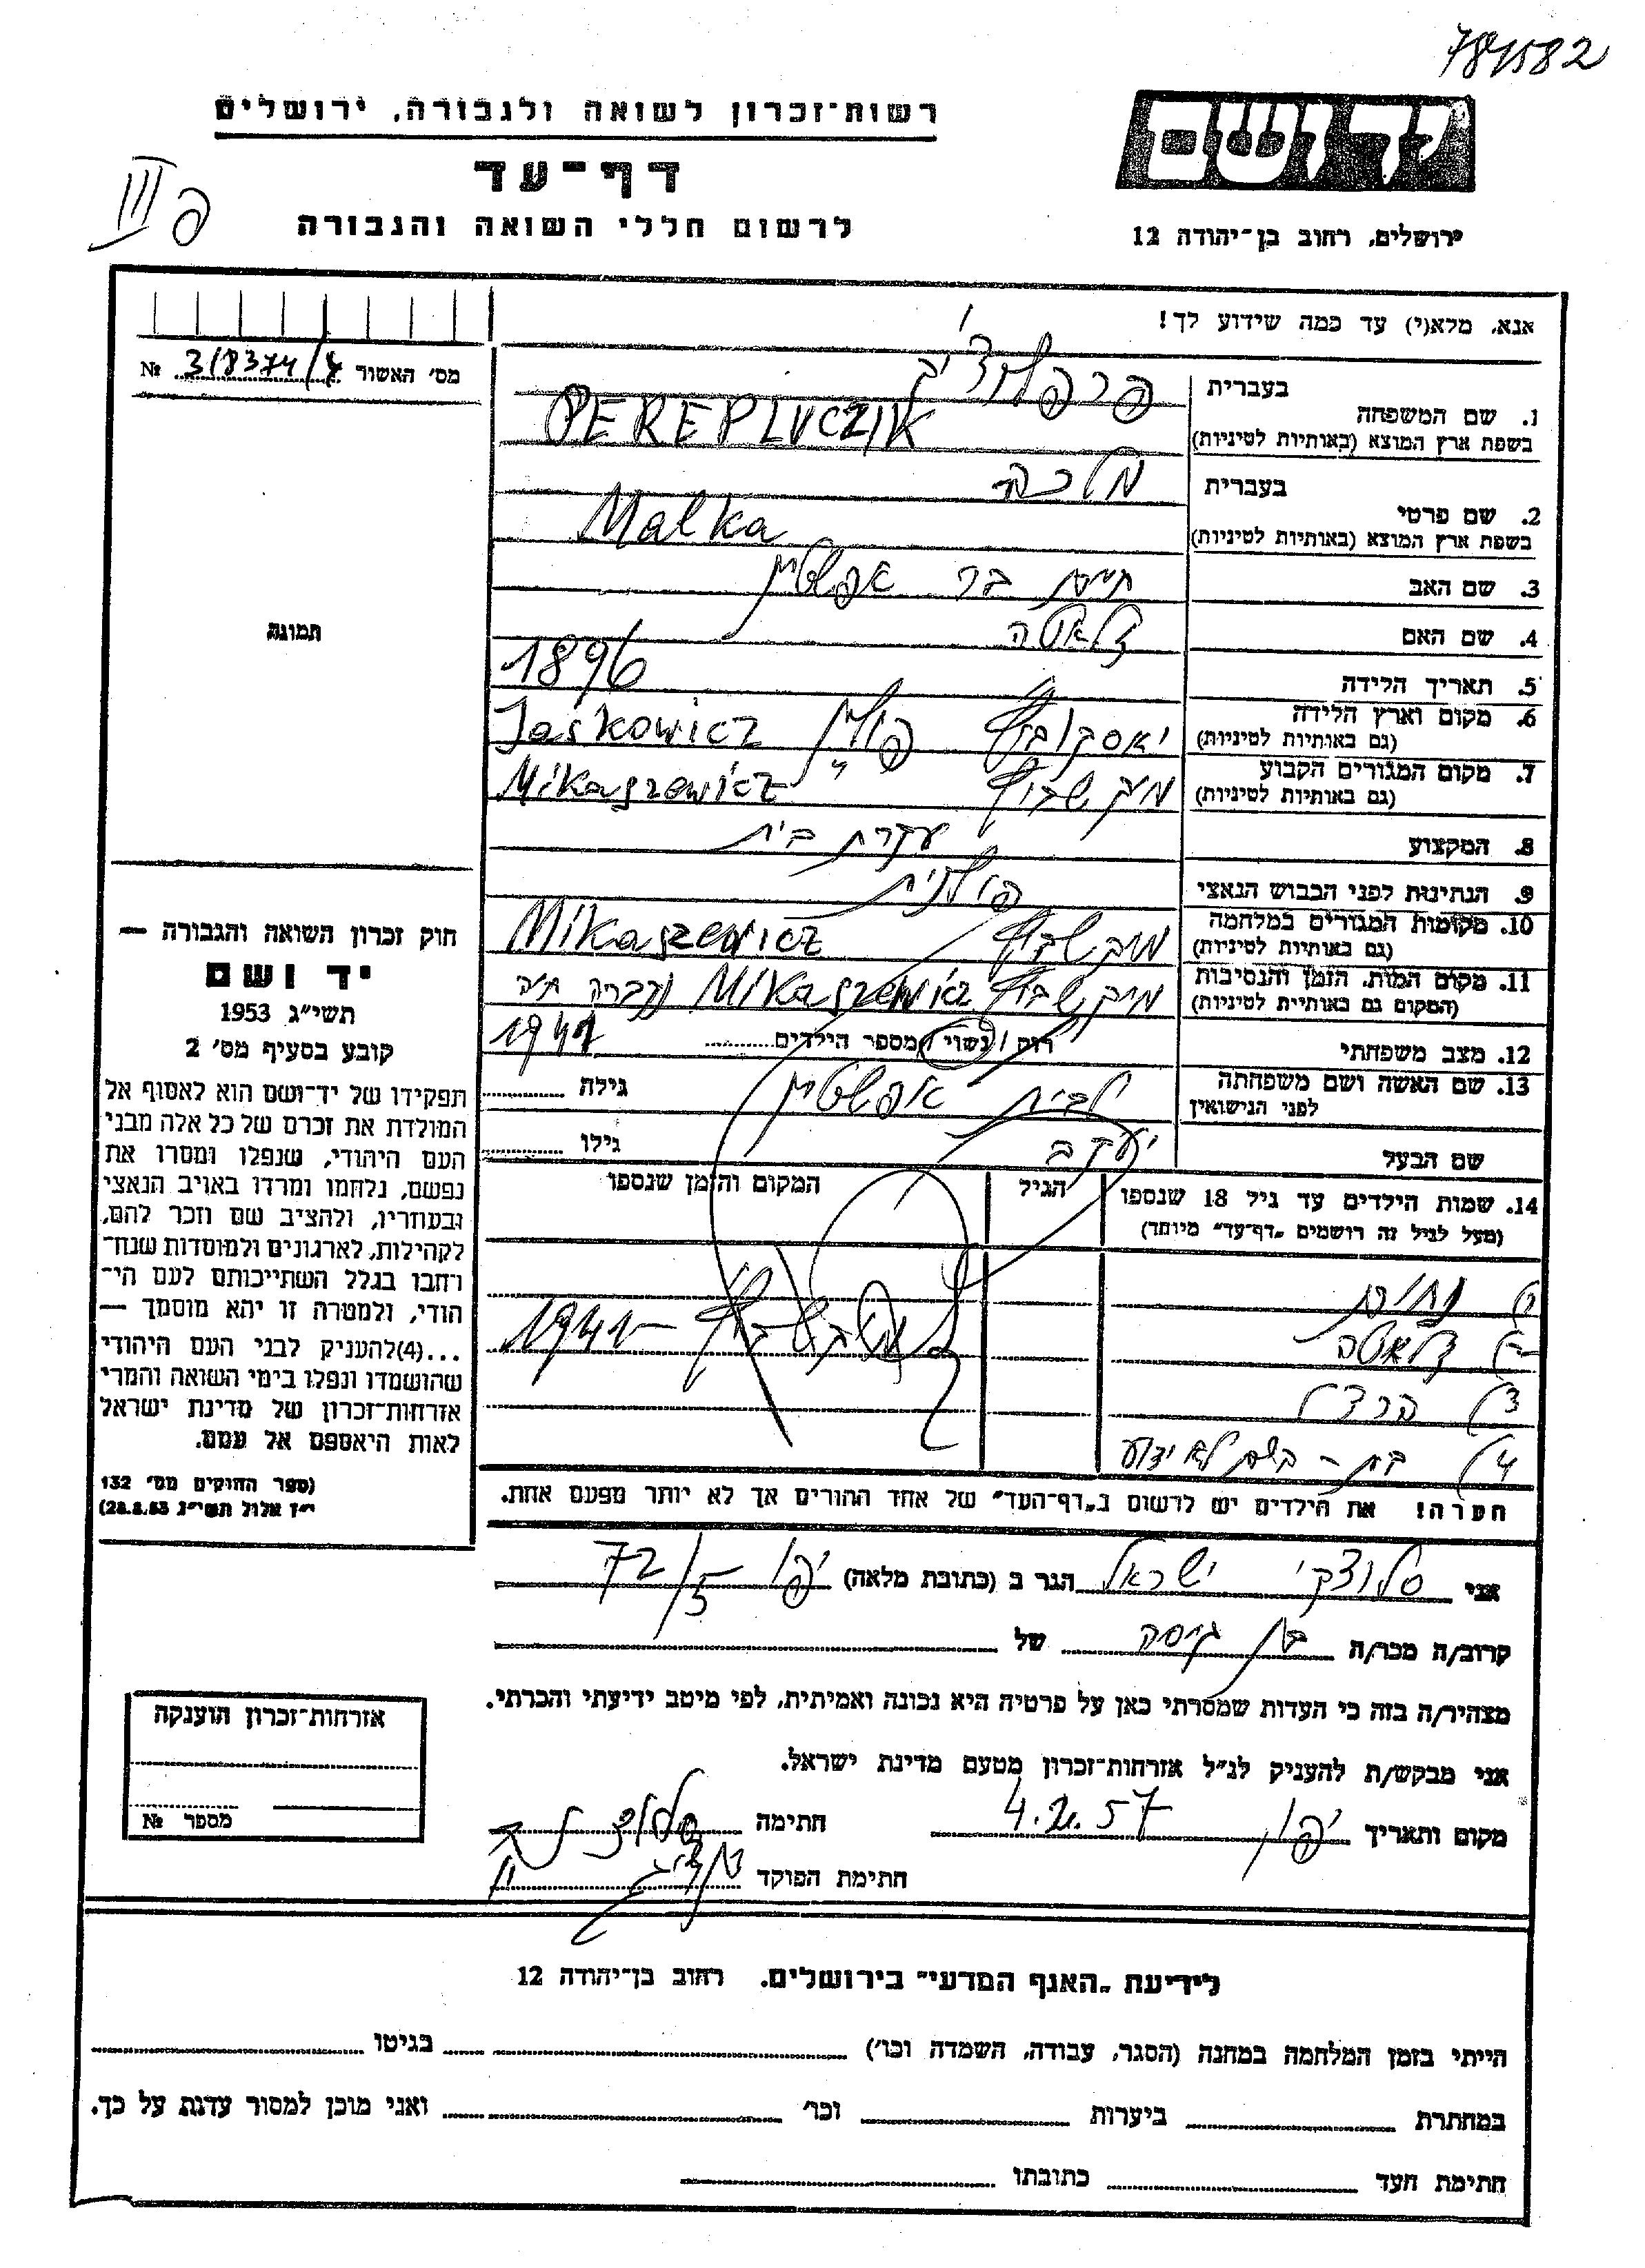 781582
רשות־זכרון לשואה ולגבורה, ירושלים
יד ושם
דף־עד
לרשום חללי השואה והגבורה
ירושלים, רחוב בן־יהודה 12
פ III
אנא, מלא(י) עד כמה שידוע לך!
מס׳ האשור 318374/4 №
בעברית
1. שם המשפחה
בשפת ארץ המוצא (באותיות לטיניות) PEREPLUCZIK
בעברית מלכה
2. שם פרטי
בשפת ארץ המוצא (באותיות לטיניות) Malka
3. שם האב חיים בר אפשטיין
4. שם האם זלאטה
5. תאריך הלידה 1896
6. מקום וארץ הלידה יאסקוביץ פולין Jaskowicz
(גם באותיות לטיניות)
7. מקום המגורים הקבוע מיקשביץ " Mikaszewicz
(גם באותיות לטיניות)
8. המקצוע עקרת בית
9. הנתינות לפני הכבוש הנאצי פולנית
10. מקומות המגורים במלחמה מיקשביץ Mikaszewicz
(גם באותיות לטיניות)
11. מקום המות, הזמן והנסיבות מיקשביץ Mikaszewicz נקברה חיה
(המקום גם באותיות לטיניות) 1941
12. מצב משפחתי רווק / נשוי / מספר הילדים
13. שם האשה ושם משפחתה לבית אפשטיין גילה
לפני הנישואין
שם הבעל יעקב גילו
14. שמות הילדים עד גיל 18 שנספו הגיל המקום והזמן שנספו
(מעל לגיל זה רושמים „דף־עד" מיוחד)
נחום
זלאטה מיקשביץ – 1941
4) בת – השם לא ידוע
הערה! את הילדים יש לרשום ב„דף־העד" של אחד ההורים אך לא יותר מפעם אחת.
תמונה
חוק זכרון השואה והגבורה —
יד ושם
תשי״ג 1953
קובע בסעיף מס׳ 2
תפקידו של יד־ושם הוא לאסוף אל
המולדת את זכרם של כל אלה מבני
העם היהודי, שנפלו ומסרו את
נפשם, נלחמו ומרדו באויב הנאצי
ובעוזריו, ולהציב שם וזכר להם,
לקהילות, לארגונים ולמוסדות שנח־
רבו בגלל השתייכותם לעם הי־
הודי, ולמטרה זו יהא מוסמך —
...(4)להעניק לבני העם היהודי
שהושמדו ונפלו בימי השואה והמרי
אזרחות־זכרון של מדינת ישראל
לאות היאספם אל עמם.
(ספר החוקים מס׳ 132
י״ז אלול תשי״ג 28.8.53)
אני סלוצקי ישראל הגר ב (כתובת מלאה) יפו 72/5
קרוב/ה מכר/ה בן גיסה של
מצהיר/ה בזה כי העדות שמסרתי כאן על פרטיה היא נכונה ואמיתית, לפי מיטב ידיעתי והכרתי.
אני מבקש/ת להעניק לנ״ל אזרחות־זכרון מטעם מדינת ישראל.
מקום ותאריך יפו 57 חתימה
חתימת הפוקד
אזרחות־זכרון הוענקה
מספר №
לידיעת „האגף המדעי" בירושלים. רחוב בן־יהודה 12
הייתי בזמן המלחמה במחנה (הסגר, עבודה, השמדה וכו׳) בגיטו
במחתרת ביערות וכו׳ ואני מוכן למסור עדות על כך.
חתימת העד כתובתו